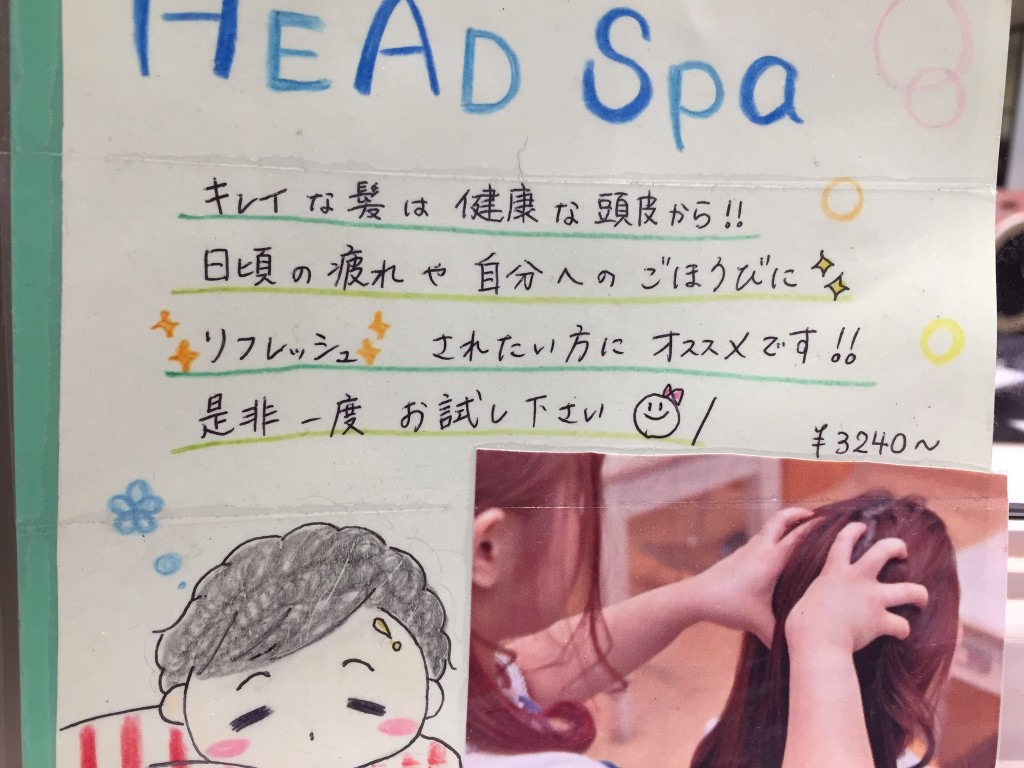 HEAD Spa
キレイな髪は健康な頭皮から!!
日頃の疲れや自分へのごほうびに
リフレッシュ されたい方にオススメです!!
是非一度お試し下さい
¥3240～